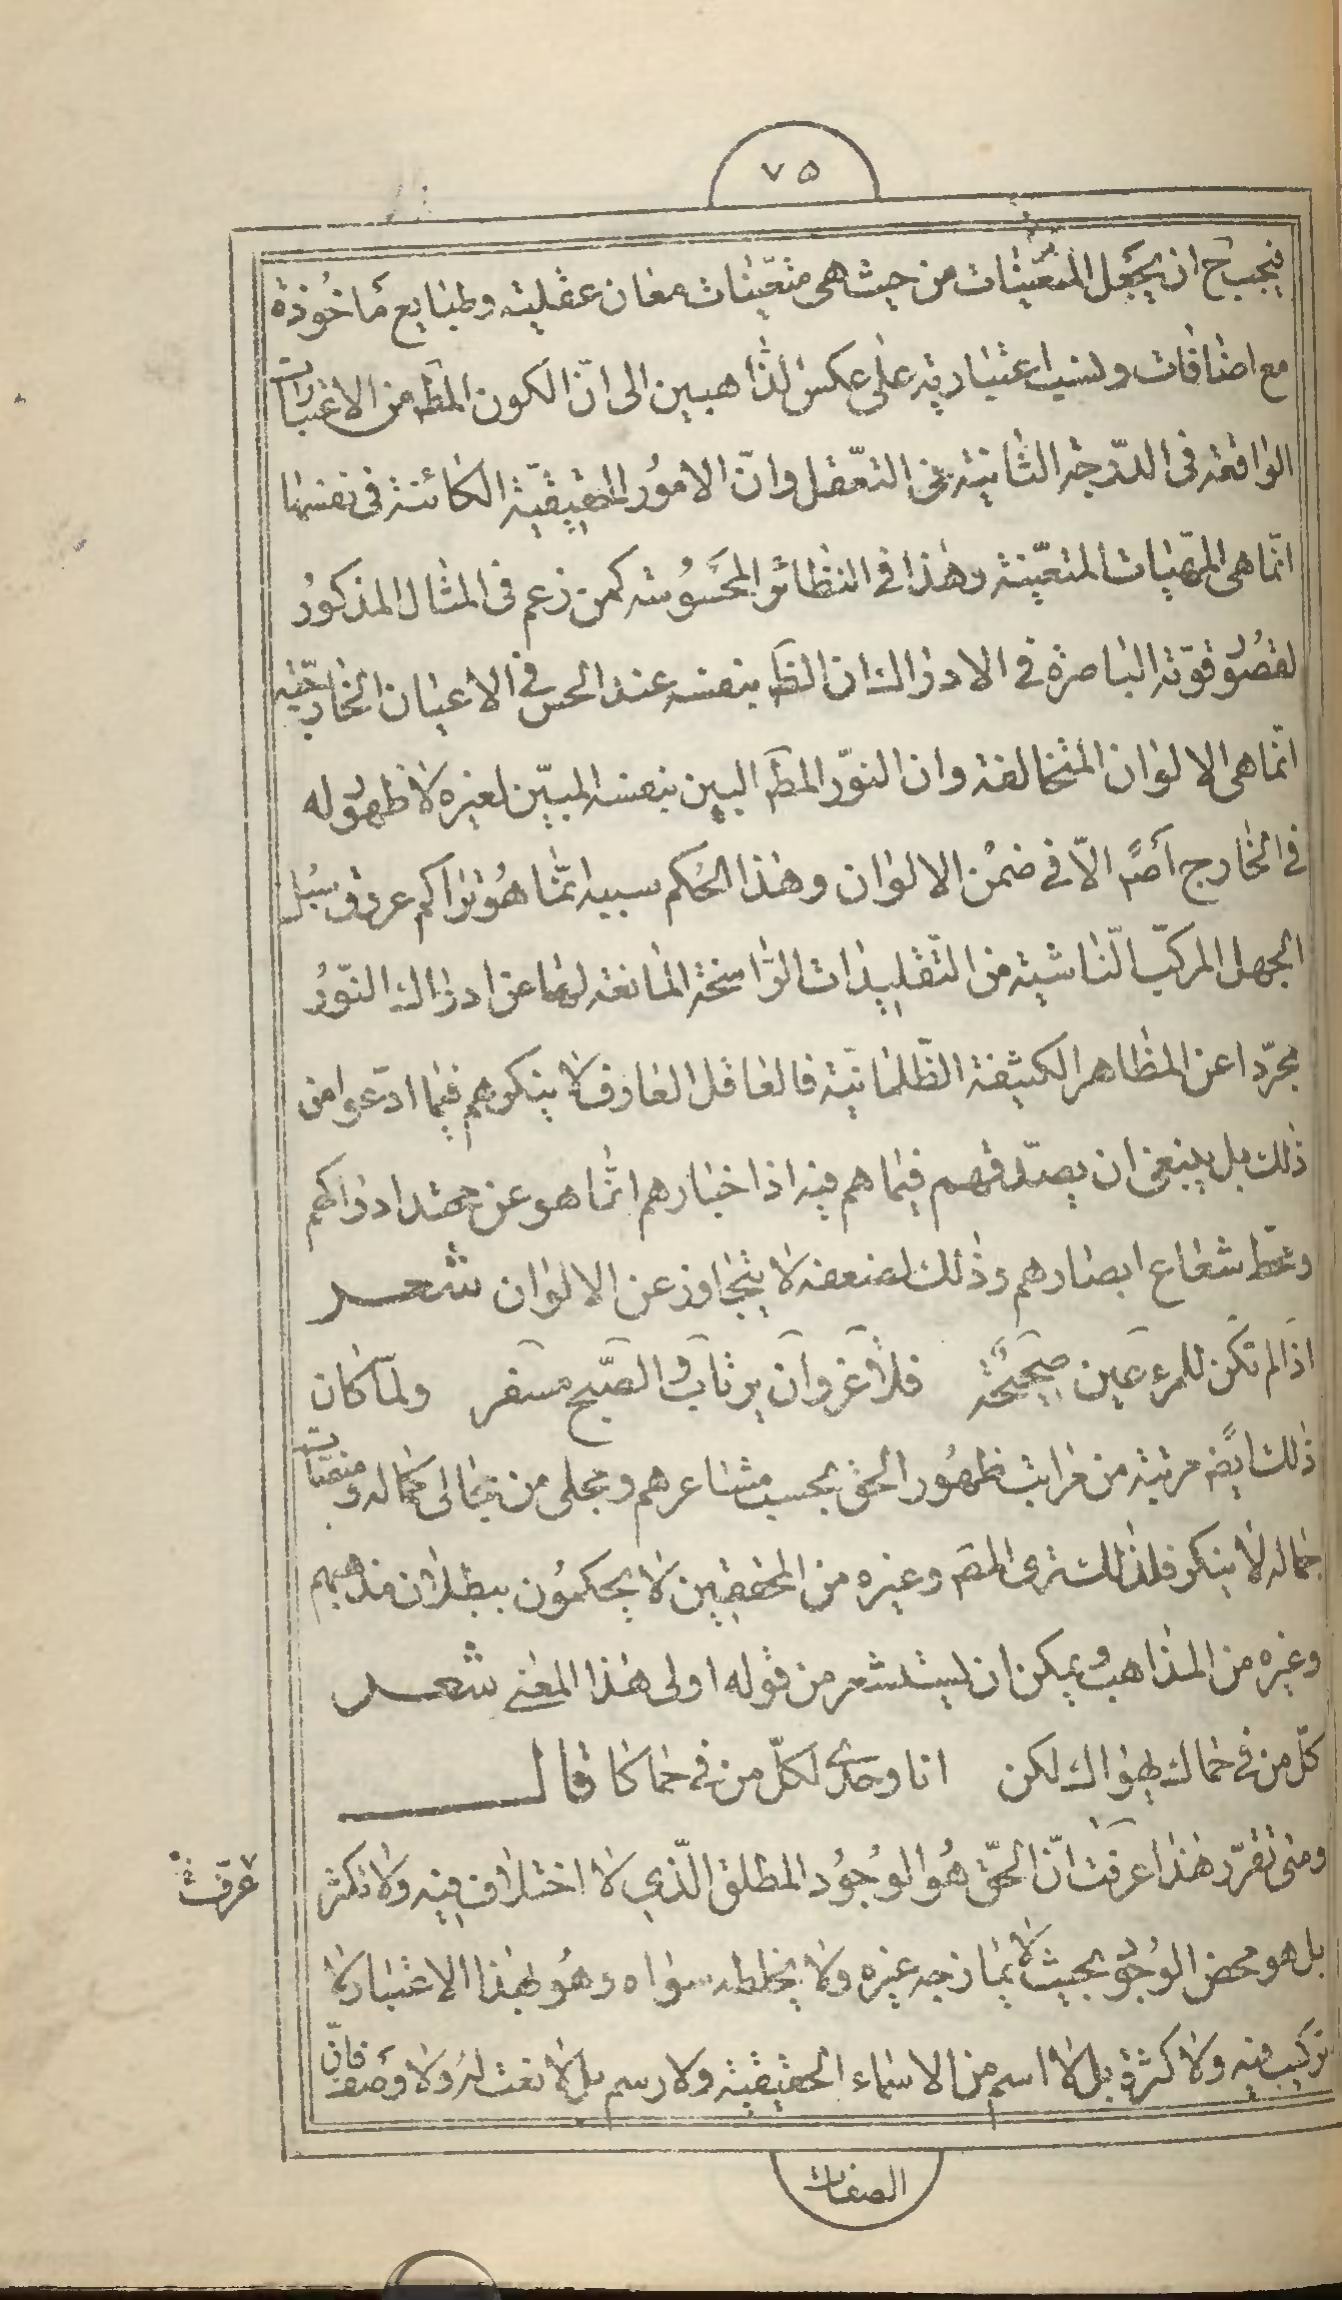 ٧٥
فيجب ح ان يجعل المتعيّنات من حيث هى متعيّنات معان عقلية وطبايع مأخوذة
مع اضافات ونسب اعتبارية على عكس الذاهبين الى انّ الكون المط من الاعتبارات
الواقعة فى الدّرجة الثانية فى التعقل وانّ الامور الحقيقيّة الكائنة فى نفسها
انّما هى المهيّات المتعيّنة وهذا فى النظائر المحسوسة كمن زعم فى المثال المذكور
لقصور قوّته الباصرة فى الادراك ان الظ بنفسه عند الحس فى الاعيان الخارجيّة
انّما هى الالوان المتخالفة وان النّور المط البين بنفسه المبيّن لغيره لا ظهور له
فى الخارج اصلا الّا فى ضمن الالوان وهذا الحكم سببه انّما هو تراكم عروق سبل
الجهل المركّب النّاشية من التّقليدات الرّاسخة المانعة لها عن ادراك النّور
مجرّدا عن المظاهر الكثيفة الظّلمانيّة فالعاقل العارف لا ينكرهم فيما ادّعوا من
ذلك بل ينبغى ان يصدّقهم فيما هم فيه اذ اخبارهم انّما هو عن محتد ادراكهم
ومحطّ شعاع ابصارهم وذلك لضعفه لا يتجاوز عن الالوان شعر
اذا لم تكن للمرء عين صحيحة فلا غرو ان يرتاب والصّبح مسفر ولمّا كان
ذلك ايضً مرتبة من مراتب ظهور الحق بحسب مشاعرهم ومجلى من مجالى كماله ومنصّات
جماله لا ينكر فلذلك ترى المص وغيره من المحققين لا يحكمون ببطلان مذهبهم
وغيره من المذاهب ويمكن ان يستشعر من قوله اولى هذا المعنى شعر
كلّ من فى حماك يهواك لكن انا وحدى لكلّ من فى حماكا قال
ومتى تقرّر هذا عرفت انّ الحقّ هو الوجود المطلق الّذي لا اختلاف فيه ولا تكثر
عرفت
بل هو محض الوجود بحيث لا يمازجه غيره ولا يخالطه سواه وهو بهذا الاعتبار لا
تركيب فيه ولا كثرة بل لا اسم من الاسماء الحقيقية ولا رسم بل لا نعت له ولا وصف فانّ
الصفات